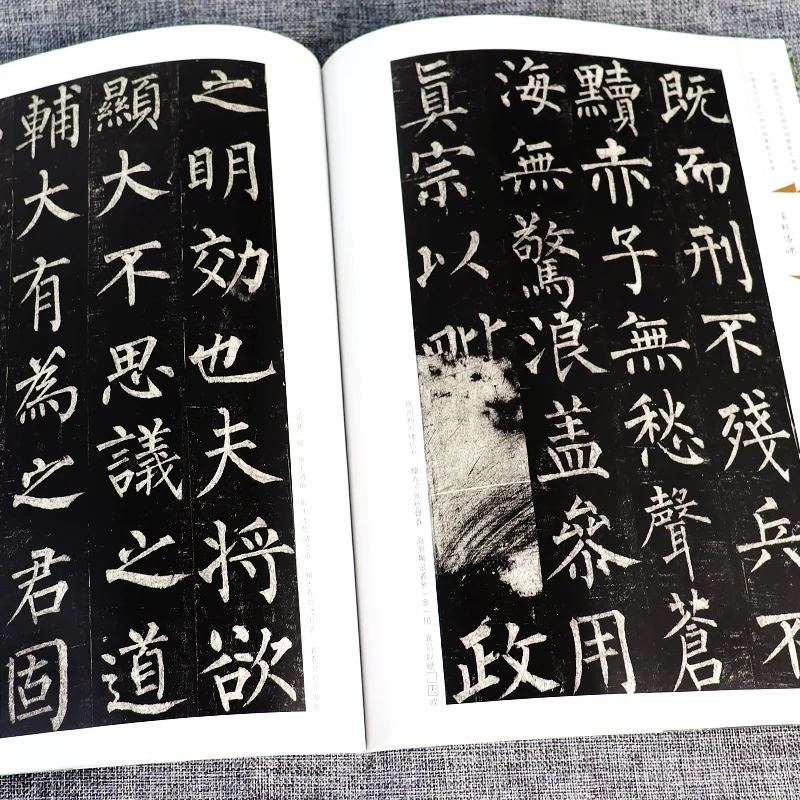 既而刑不殘兵不
黷赤子無愁聲蒼
海無驚浪盖叅用
眞宗以毗政
之明効也夫將欲
顯大不思議之道
輔大有為之君固
玄秘塔碑